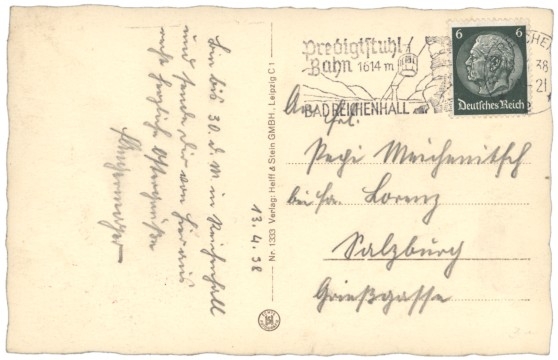 bin bis 30. d. M in Reichenhall
und sende dir von hier aus
recht herzliche Ostergrüße
13.4.38
Nr. 1333 Verlag: Helff & Stein GMBH., Leipzig C 1
Predigtstuhl
Bahn 1614 m
BAD REICHENHALL
38
21
6 6
Deutsches Reich
An
Frl.
Pepi
bei Fa. Lorenz
Salzburg
Grießgasse